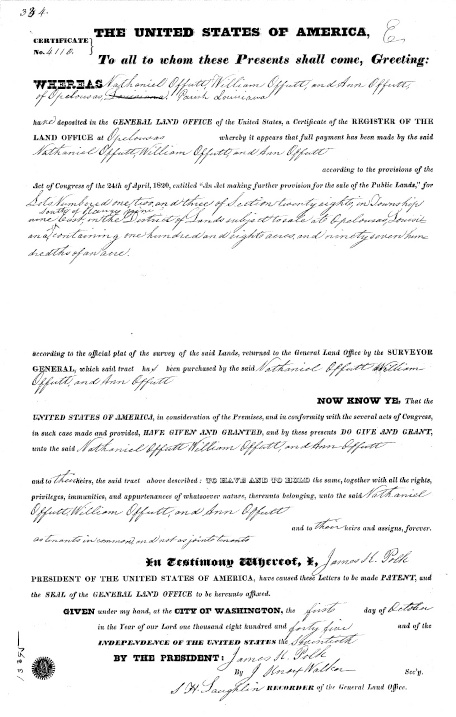 334.
THE UNITED STATES OF AMERICA, E
CERTIFICATE
No. 4110.
To all to whom these Presents shall come, Greeting:
WHEREAS Nathaniel Offutt, William Offutt, and Ann Offutt,
of Opelousas, Louisiana, Parish Louisiana
have deposited in the GENERAL LAND OFFICE of the United States, a Certificate of the REGISTER OF THE
LAND OFFICE at Opelousas whereby it appears that full payment has been made by the said
Nathaniel Offutt, William Offutt, and Ann Offutt
according to the provisions of the
Act of Congress of the 24th of April, 1820, entitled "An Act making further provision for the sale of the Public Lands," for
Lots Numbered one, two, and three of Section twenty eight, in Township
nine East, in the District of Lands subject to sale at Opelousas, Louisi-
south of Range nine
ana, containing one hundred and eighty acres, and ninety seven hun
dredths of an acre.
according to the official plat of the survey of the said Lands, returned to the General Land Office by the SURVEYOR
GENERAL, which said tract has been purchased by the said Nathaniel Offutt William
Offutt, and Ann Offutt
NOW KNOW YE, That the
UNITED STATES OF AMERICA, in consideration of the Premises, and in conformity with the several acts of Congress,
in such case made and provided, HAVE GIVEN AND GRANTED, and by these presents DO GIVE AND GRANT,
unto the said Nathaniel Offutt William Offutt, and Ann Offutt
and to their heirs, the said tract above described: TO HAVE AND TO HOLD the same, together with all the rights,
privileges, immunities, and appurtenances of whatsoever nature, thereunto belonging, unto the said Nathaniel
Offutt, William Offutt, and Ann Offutt
and to their heirs and assigns, forever.
as tenants in common, and not as joint tenants
In Testimony Whereof, I, James K. Polk
PRESIDENT OF THE UNITED STATES OF AMERICA, have caused these Letters to be made PATENT, and
the SEAL of the GENERAL LAND OFFICE to be hereunto affixed.
GIVEN under my hand, at the CITY OF WASHINGTON, the first day of October
in the Year of our Lord one thousand eight hundred and forty five and of the
INDEPENDENCE OF THE UNITED STATES the Seventieth
BY THE PRESIDENT: James K. Polk
By J. Knox Walker Sec'y.
S. H. Laughlin RECORDER of the General Land Office.